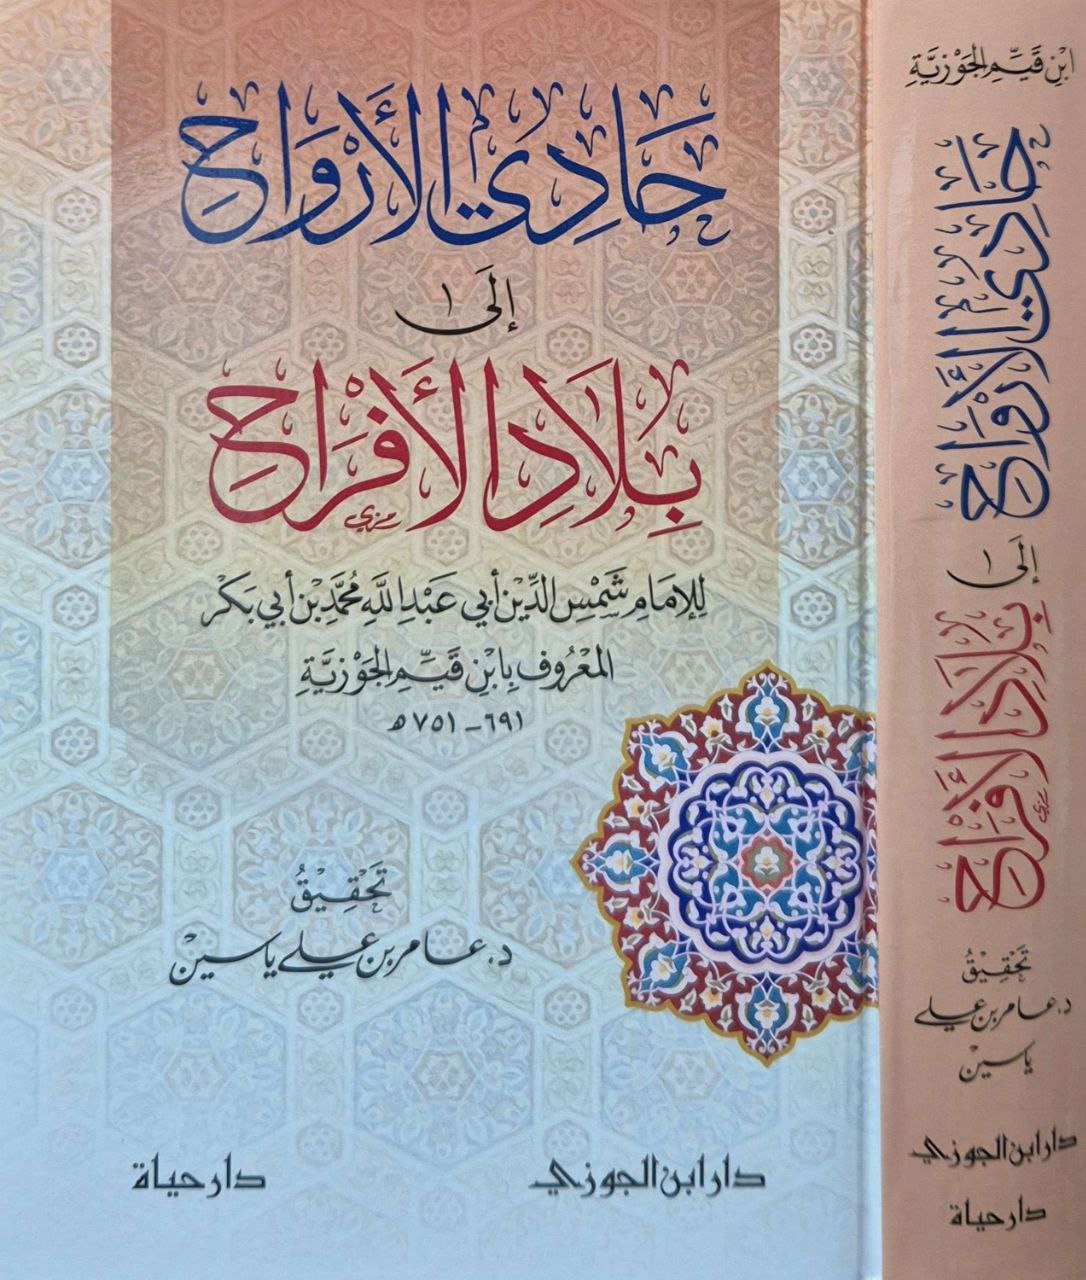 حَادِي الأَرْوَاحِ
إِلَى
بِلَادِ الأَفْرَاحِ
مزي
لِلإِمَامِ شَمْسِ الدِّيْن أَبي عَبْدِ اللَّهِ مُحَمَّدِبْن أَبي بَكْر
المَعْرُوف بِابْنِ قَيِّمِ الجَوْزِيَّةِ
٦٩١ - ٧٥١ ه
تَحْقِيْقُ
د. عامر بن علي ياسين
دار ابن الجوزي
دار حياة
ابْن قَيِّمِ الجَوْزِيَّةِ
حَادِي الأَرْوَاحِ
إِلَى
بِلَادِ الأَفْرَاحِ
مزي
تَحْقِيْقُ
د. عامر بن علي
ياسين
دار ابن الجوزي
دار حياة